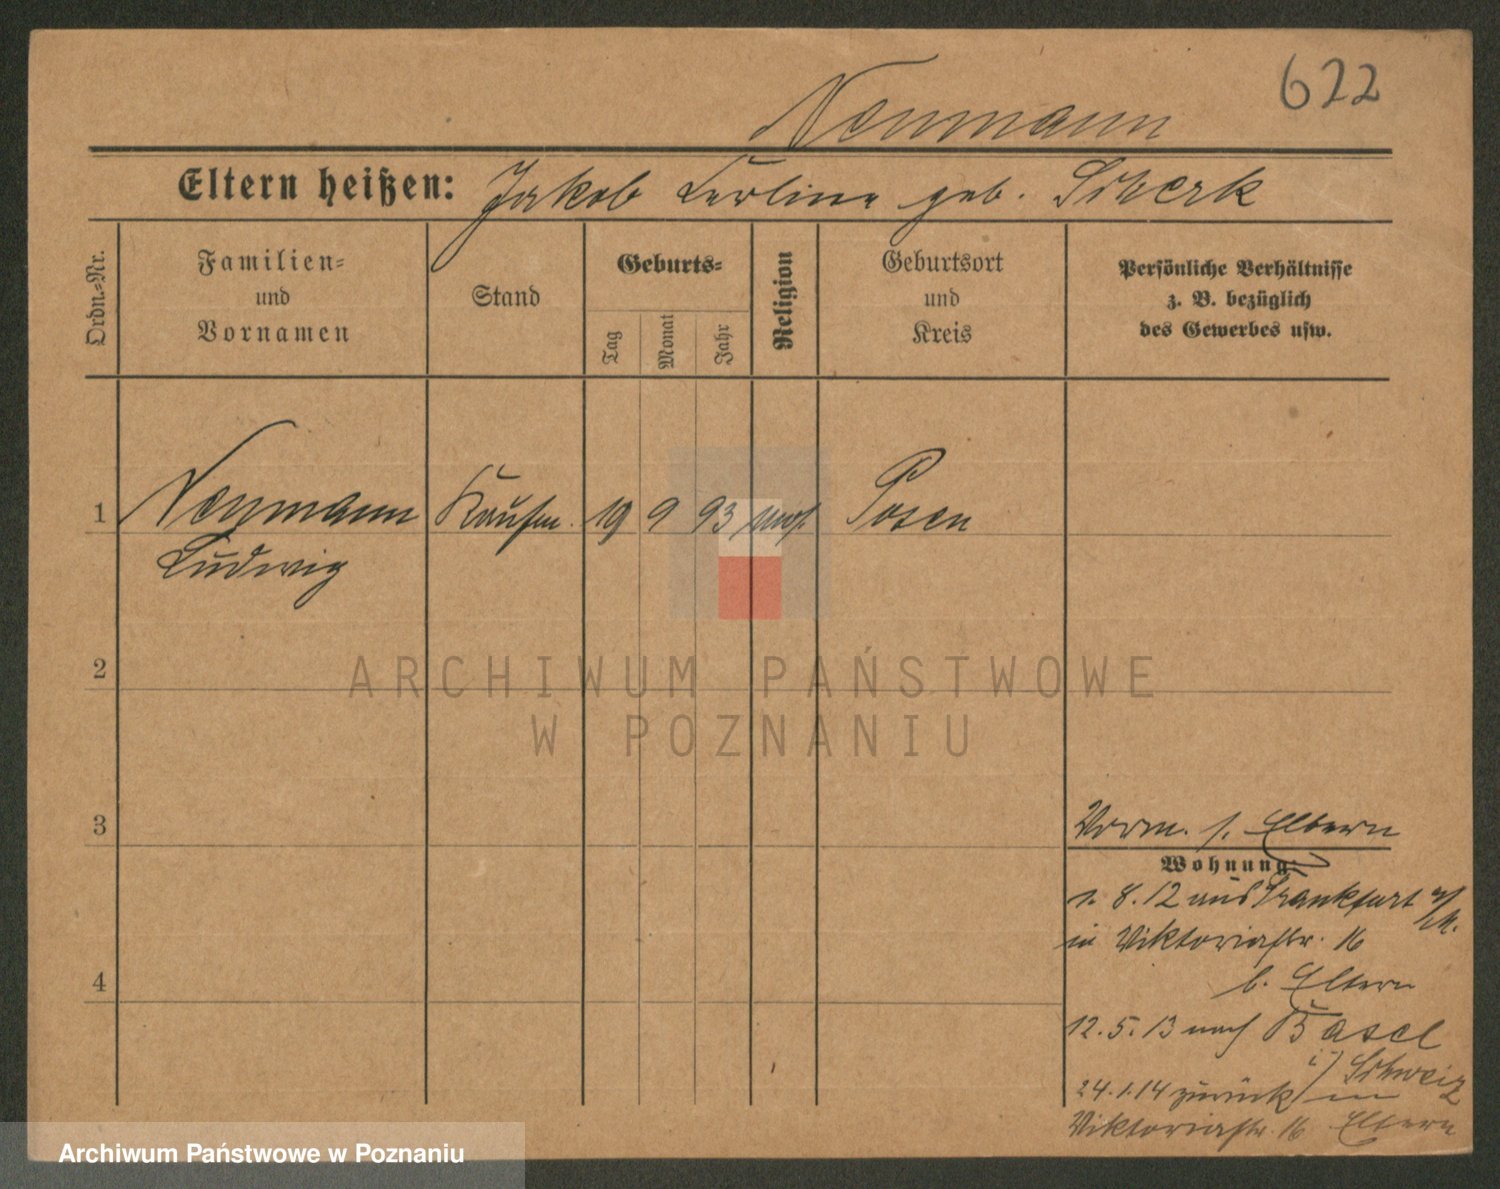 622
Neumann
Eltern heißen: Jakob geb.
Ordn.-Nr.
Familien-
und
Vornamen
Stand
Geburts-
Tag
Monat
Jahr
Religion
Geburtsort
und
Kreis
Persönliche Verhältnisse
z. B. bezüglich
des Gewerbes usw.
1 Neumann Kaufm. 19 9 93 mos. Posen
Ludwig
2
3
4
Vorm. s. Eltern
Wohnung:
1. 8. 12 aus Frankfurt a/M.
in Viktoriastr. 16
b. Eltern
12. 5. 13 nach Basel
i/Schweiz
24. 1. 14 zurück
Viktoriastr. 16 Eltern
ARCHIWUM PAŃSTWOWE
W POZNANIU
Archiwum Państwowe w Poznaniu